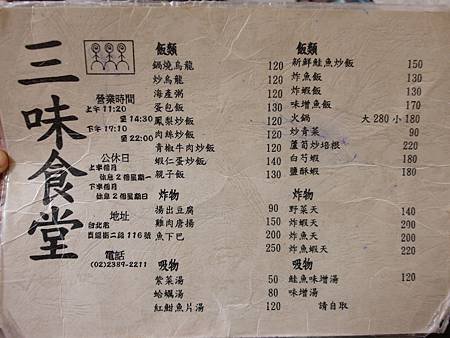 三味食堂
營業時間
上午11:20
至14:30
下午17:10
至22:00
公休日
上半個月
休息2個星期一
下半個月
休息2個星期日
地址
台北市
貴陽街二段116號
電話
(02)2389-2211
飯類
鍋燒烏龍 120
炒烏龍 120
海產粥 120
蛋包飯 130
鳳梨炒飯 120
肉絲炒飯 120
青椒牛肉炒飯 120
蝦仁蛋炒飯 120
親子飯 130
炸物
揚出豆腐 90
雞肉唐揚 150
魚下巴 200
250
吸物
紫菜湯 50
蛤蠣湯 80
紅魽魚片湯 120
飯類
新鮮鮭魚炒飯 150
炸魚飯 130
炸蝦飯 130
味增魚飯 170
火鍋 大280小180
炒青菜 90
蘆筍炒培根 220
白芍蝦 180
鹽酥蝦 180
炸物
野菜天 140
炸蝦天 200
炸魚天 200
炸魚蝦天 220
吸物
鮭魚味增湯 120
味增湯 請自取